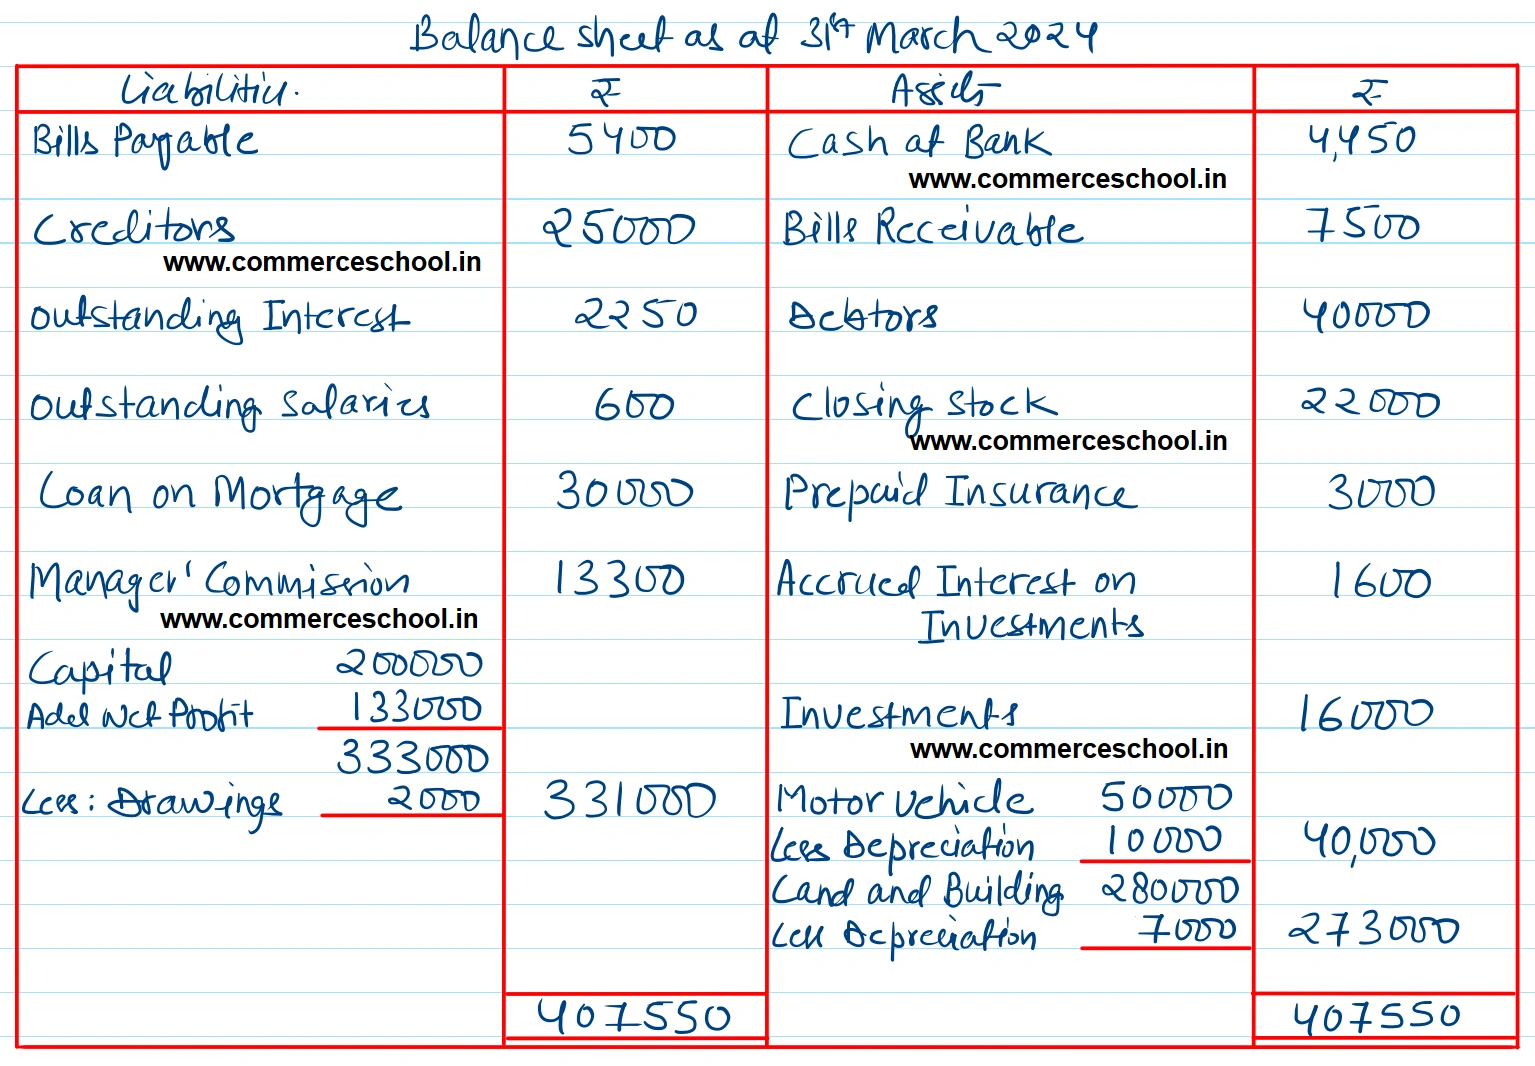 Balance sheet as at 31st March 2024
Liabilities. ₹ Assets ₹
Bills Payable 5400 Cash at Bank 4,450
www.commerceschool.in
Creditors 25000 Bills Receivable 7500
www.commerceschool.in
Outstanding Interest 2250 Debtors 40000
Outstanding Salaries 600 Closing Stock 22000
www.commerceschool.in
Loan on Mortgage 30000 Prepaid Insurance 3000
Manager' Commission 13300 Accrued Interest on 1600
www.commerceschool.in Investments
Capital 200000
Add Net Profit 133000 Investments 16000
333000 www.commerceschool.in
Less: Drawings 2000 331000 Motor Vehicle 50000
Less Depreciation 10000 40,000
Land and Building 280000
Less Depreciation 7000 273000
407550 407550